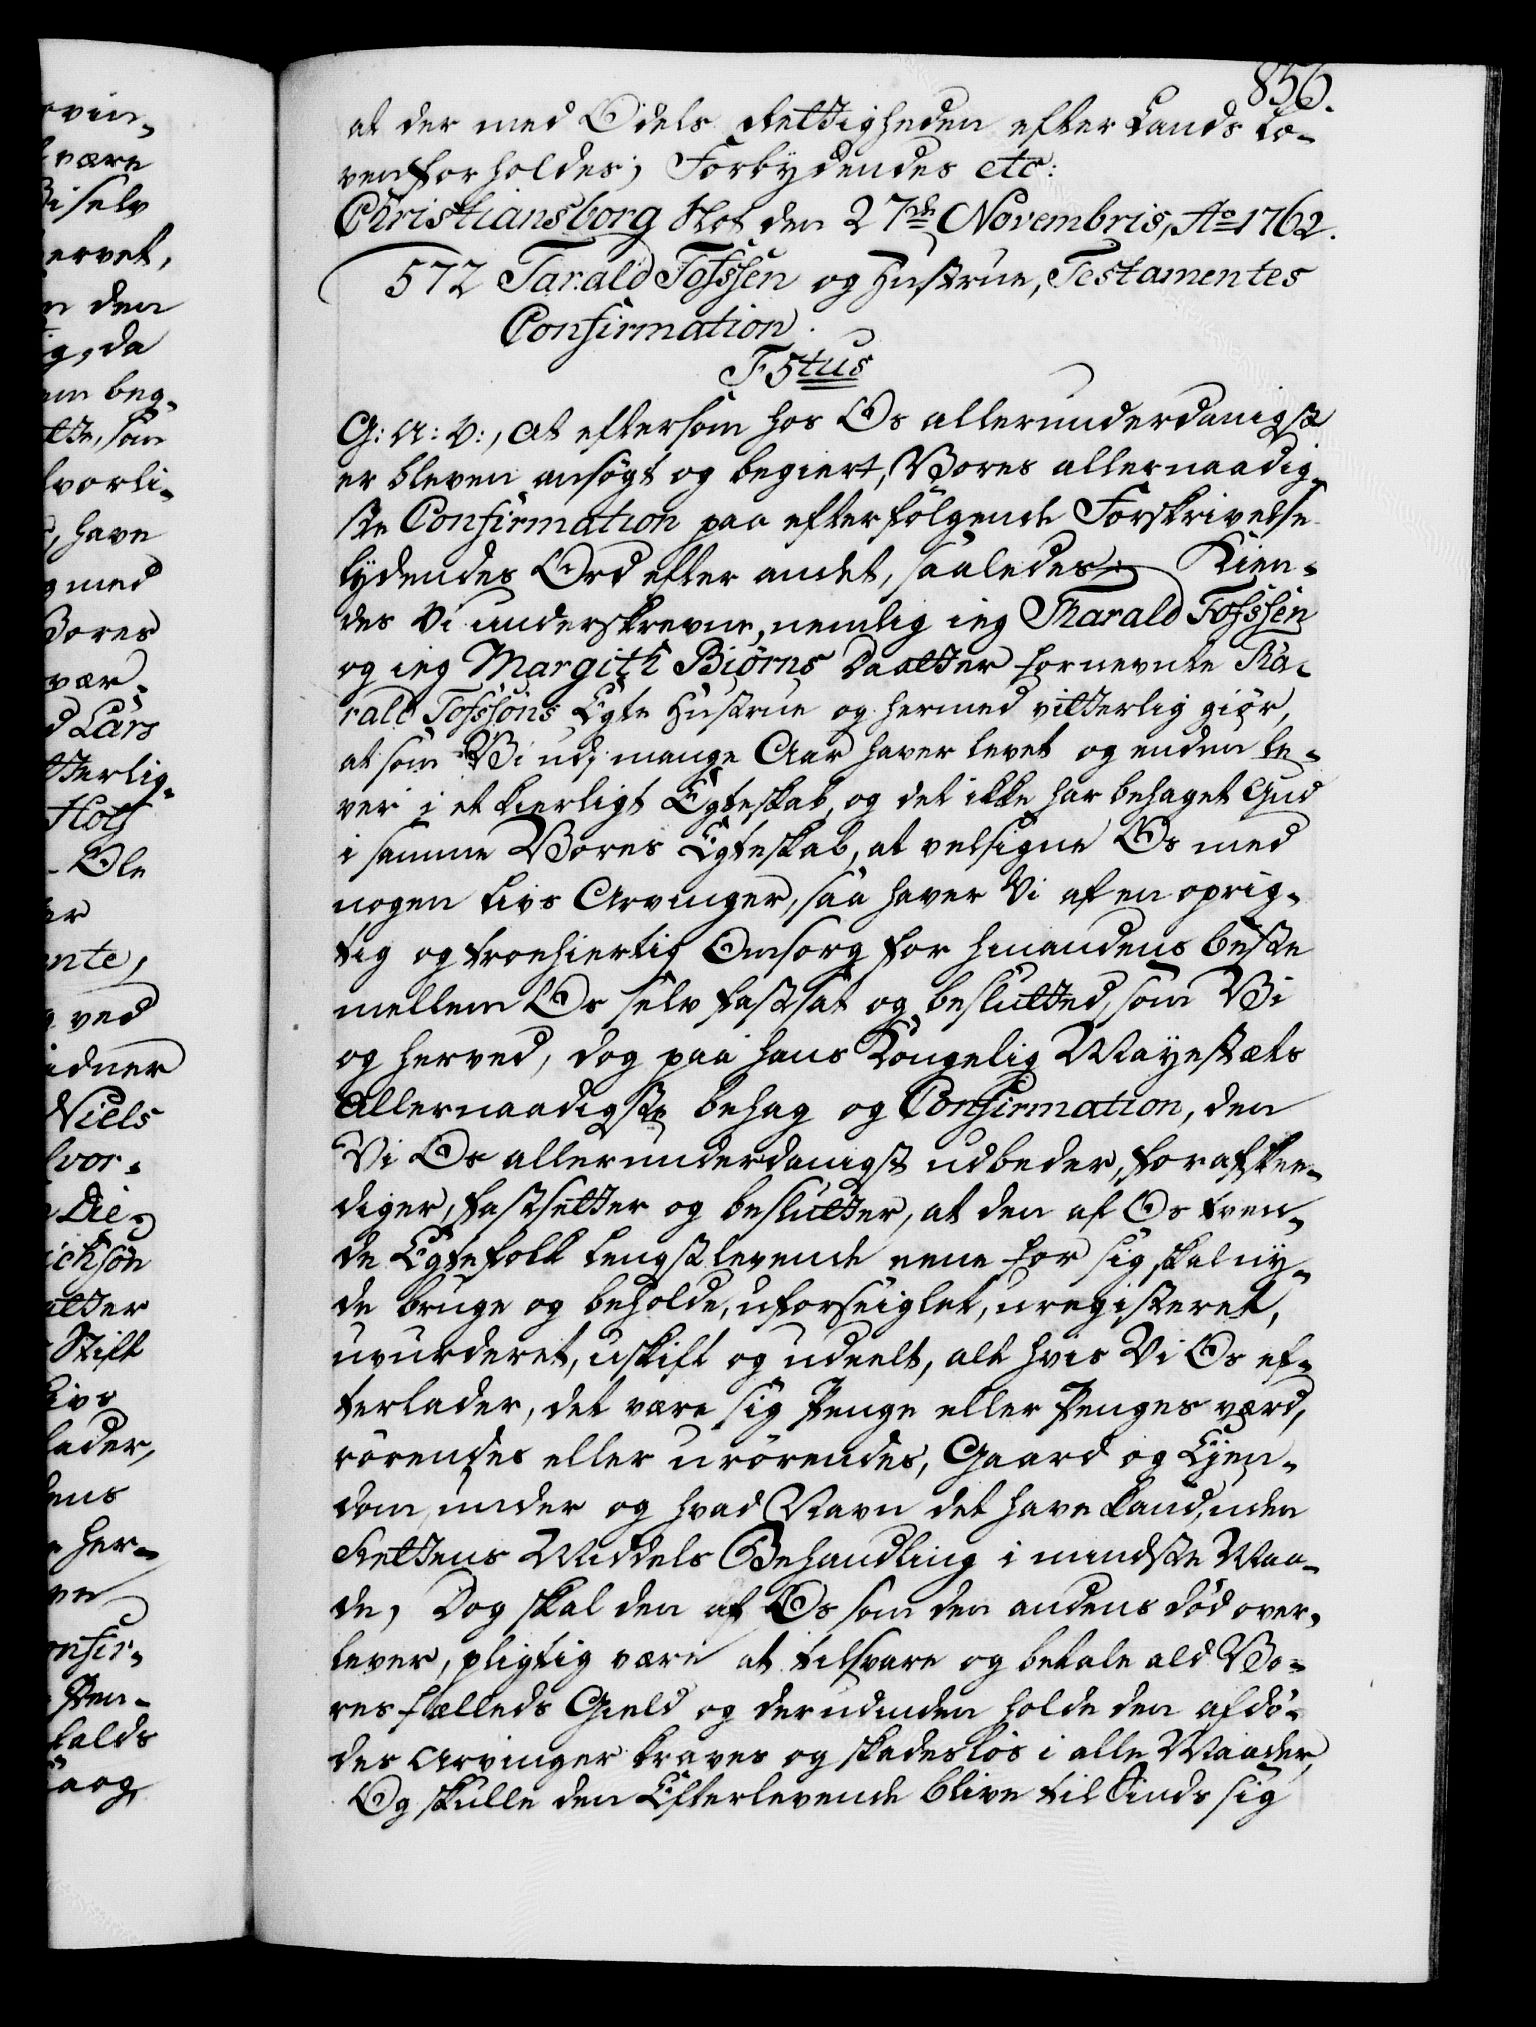 856.
at der med Odels Rettigheden efter Lands Lo-
ven forholdes; Forbydendes etc:
Christiansborg Slot den 27de Novembris, Ao 1762.
572 Tarald Tofssen og Hustrue, Testamentes
Confirmation.
F 5tus
G: A: V:, at eftersom hos Os allerunderdanigst
er bleven ansøgt og begiert, Vores allernaadig-
ste Confirmation paa efterfølgende Forskrivelse
lydendes Ord efter andet, saaledes: Kien-
des Vi underskrevne, nemlig ieg Tharald Tofssen
og ieg Margith Biørns Daatter fornevnte Tha-
rald Tofssøns Egte Hustrue og hermed vitterlig giør,
at som Vi udi mange Aar haver levet og enden le-
ver i et kierligt Egteskab, og det ikke har behaget Gud
i samme Vores Egteskab, at velsigne Os med
nogen Livs Arvinger, saa haver Vi af en oprig-
tig og troehiertig Omsorg for hinandens beste
mellem Os selv fastsat og besluttet, som Vi
og herved, dog paa hans Kongelig Mayestæts
Allernaadigste behag og Confirmation, den
Vi Os allerunderdanigst udbeder, forafskee-
diger, fastsetter og beslutter, at den af Os tven-
de Egtefolk lengstlevende eene for sig skal ny-
de bruge og beholde, uforseiglet, uregisteret,
uvurderet, uskift og udeelt, alt hvis Vi Os ef-
terlader, det være sig Penge eller Penges værd,
rørendes eller urørendes, Gaard og Ejen-
dom, under og hvad Navn det have kand, uden
Rettens Middels Behandling i mindste Maa-
de, Dog skal den af Os som den andens død over-
lever, pligtig være at tilsvare og betale ald Vo-
res fælleds Gield og derudinden holde den afdø-
des Arvinger kraves og skadesløs i alle Maader,
Og skulle den Efterlevende blive til Sinds sig